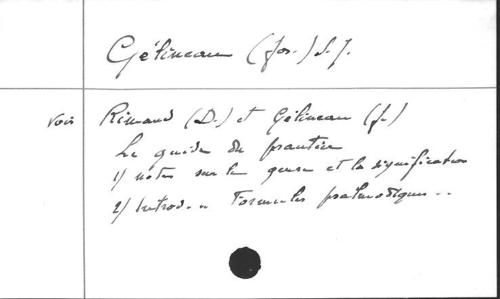 Gélineau (Jos.) s.J.
voir Rimaud (D.) et Gélineau (J.)
Le guide du psautier
1/ notes sur le genre et la signification
2/ Introd. .. Formules psalmodiques ..